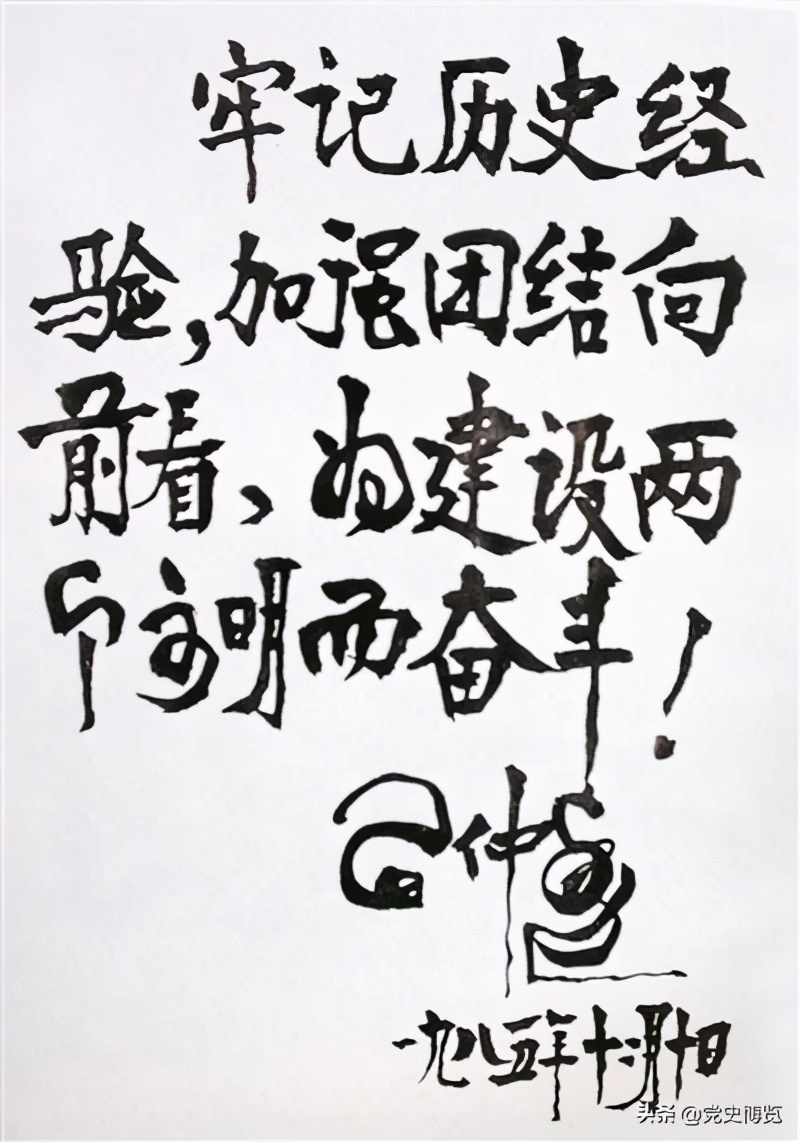 牢记历史经
验，加强团结向
前看，为建设两
个文明而奋斗！
习仲勋
一九八五年十二月十日
头条 @党史博览